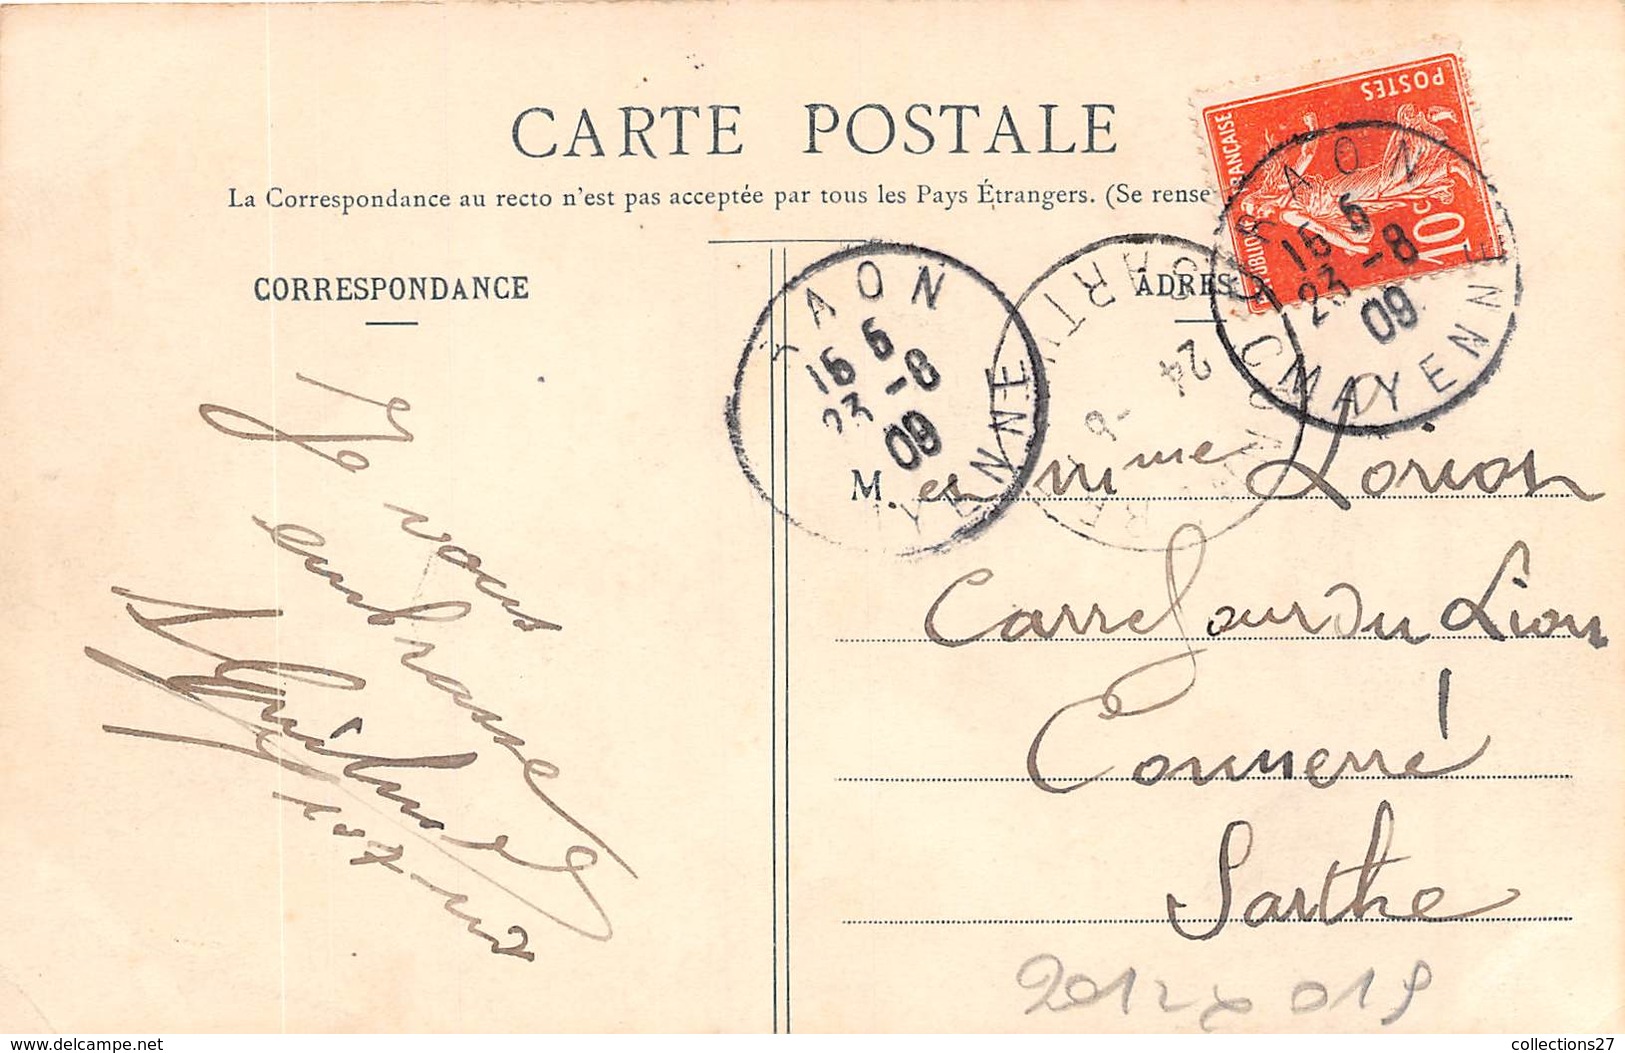 CARTE POSTALE
La Correspondance au recto n'est pas acceptée par tous les Pays Étrangers. (Se rense
CORRESPONDANCE
ADRES
POSTES
10c
AON
16 5
23 -8
09
MAYENNE
AON
16 5
23 -8
09
YENNE
SARTH
24
-8
Je vous
embrasse
M. et Mme Lorion
Carrefour du Lion
Connerré
Sarthe
delcampe.net
collections27